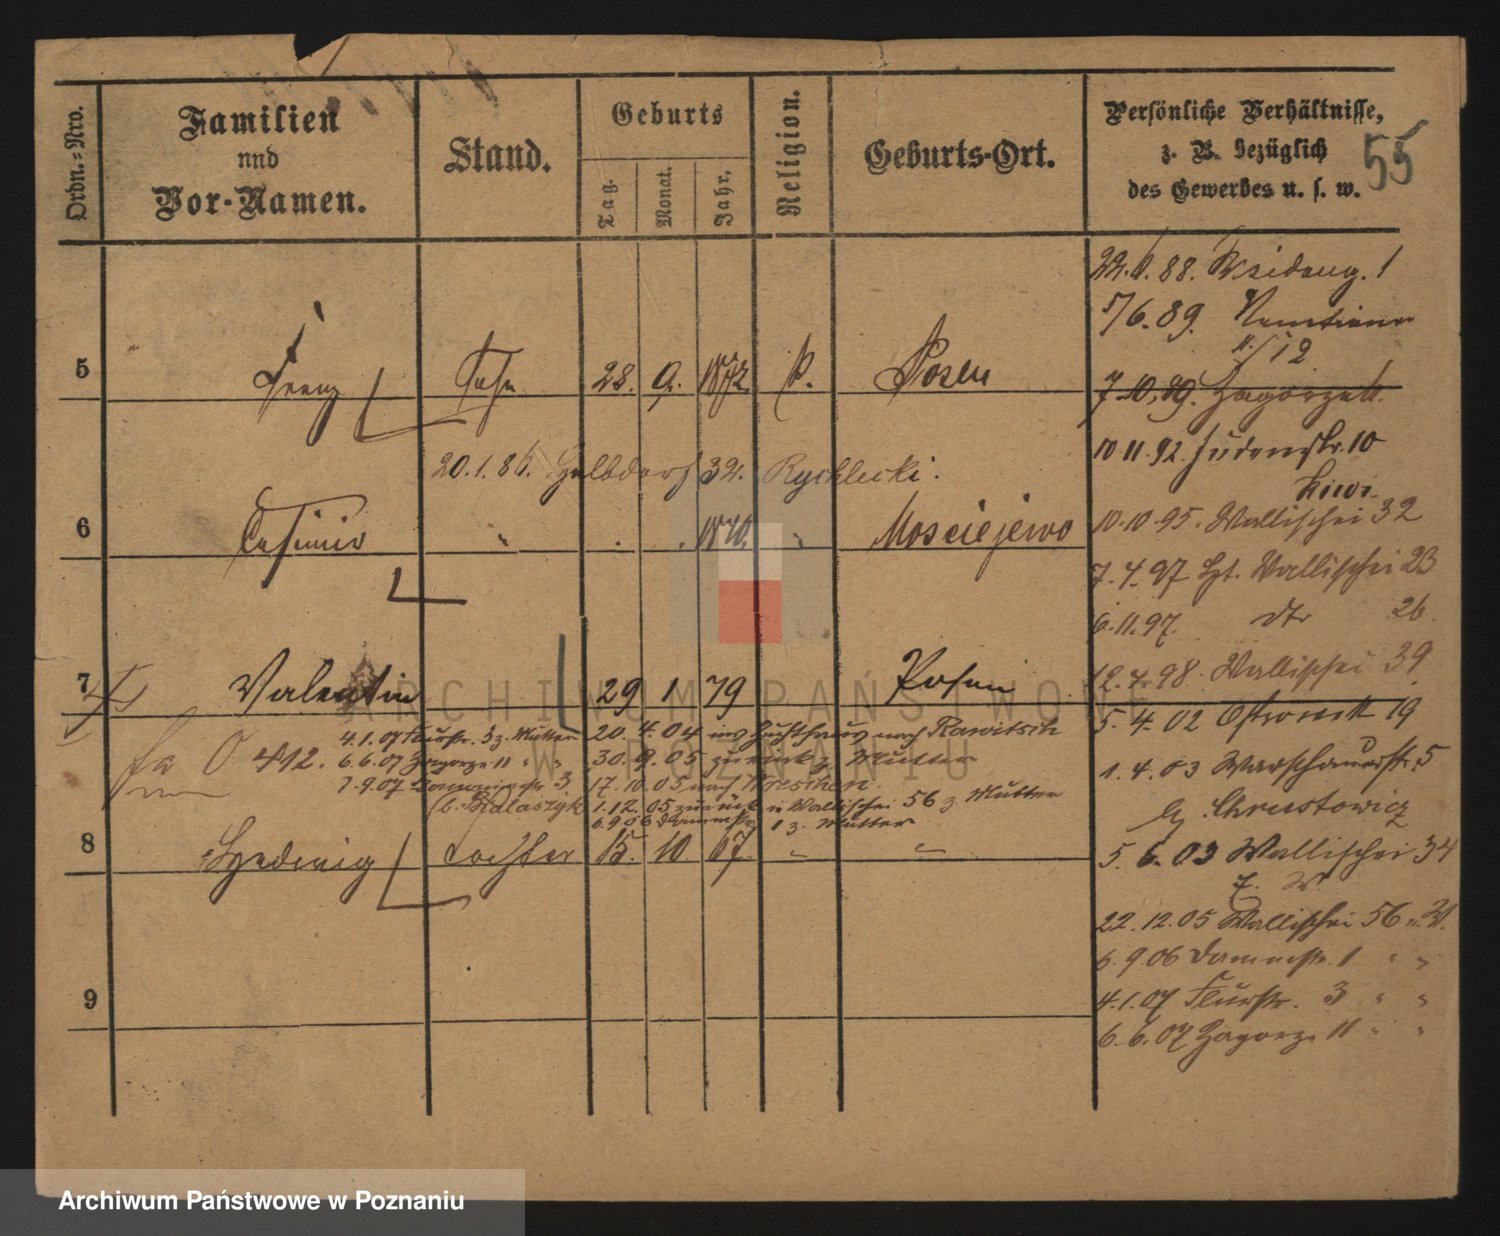 Ordn.=Nro.
Familien
und
Vor-Namen.
Stand.
Geburts
Tag.
Monat.
Jahr.
Religion.
Geburts-Ort.
Persönliche Verhältnisse,
z. B. bezüglich
des Gewerbes u. s. w.
55
22. 88.
5/6. 89.
12
5 Franz Sohn 28. 9. 1872. k. Posen
7.10.89. Zagorze
10 11. 92. Judenstr. 10
20.1.86. 32. Rychlecki.
6 Casimir " . . 1870. " Mosciejewo
10.10.95. Wallischei 32
7.4.97 Wallischei 23
6.11.97. dto 26.
12.4.98. Wallischei 39
7 Valentin 29 1 79 Posen
5.4.02 Ostrowek 19
4.1.07 Flurstr. 3 z. Mutter
20.4.04 ins Zuchthaus nach Rawitsch
412. 6.6.07 Zagorze 11 " "
30.9.05 zurück z. Mutter
1.4.03 Warschauerstr. 5
7.9.07 3
17.10.05 nach Wreschen
b. Chrustowicz
1.12.05 zurück n Wallischei 56 z. Mutter
6.9.06 Dammstr. 1 z. Mutter
8 Hedwig Tochter 15. 10 67. " "
5.6.03 Wallischei 34
22.12.05 Wallischei 56
6.9.06 Dammstr. 1 " "
9
4.1.07 Flurstr. 3 " "
6.6.07 Zagorze 11 " "
ARCHIWUM PAŃSTWOWE
W POZNANIU
Archiwum Państwowe w Poznaniu